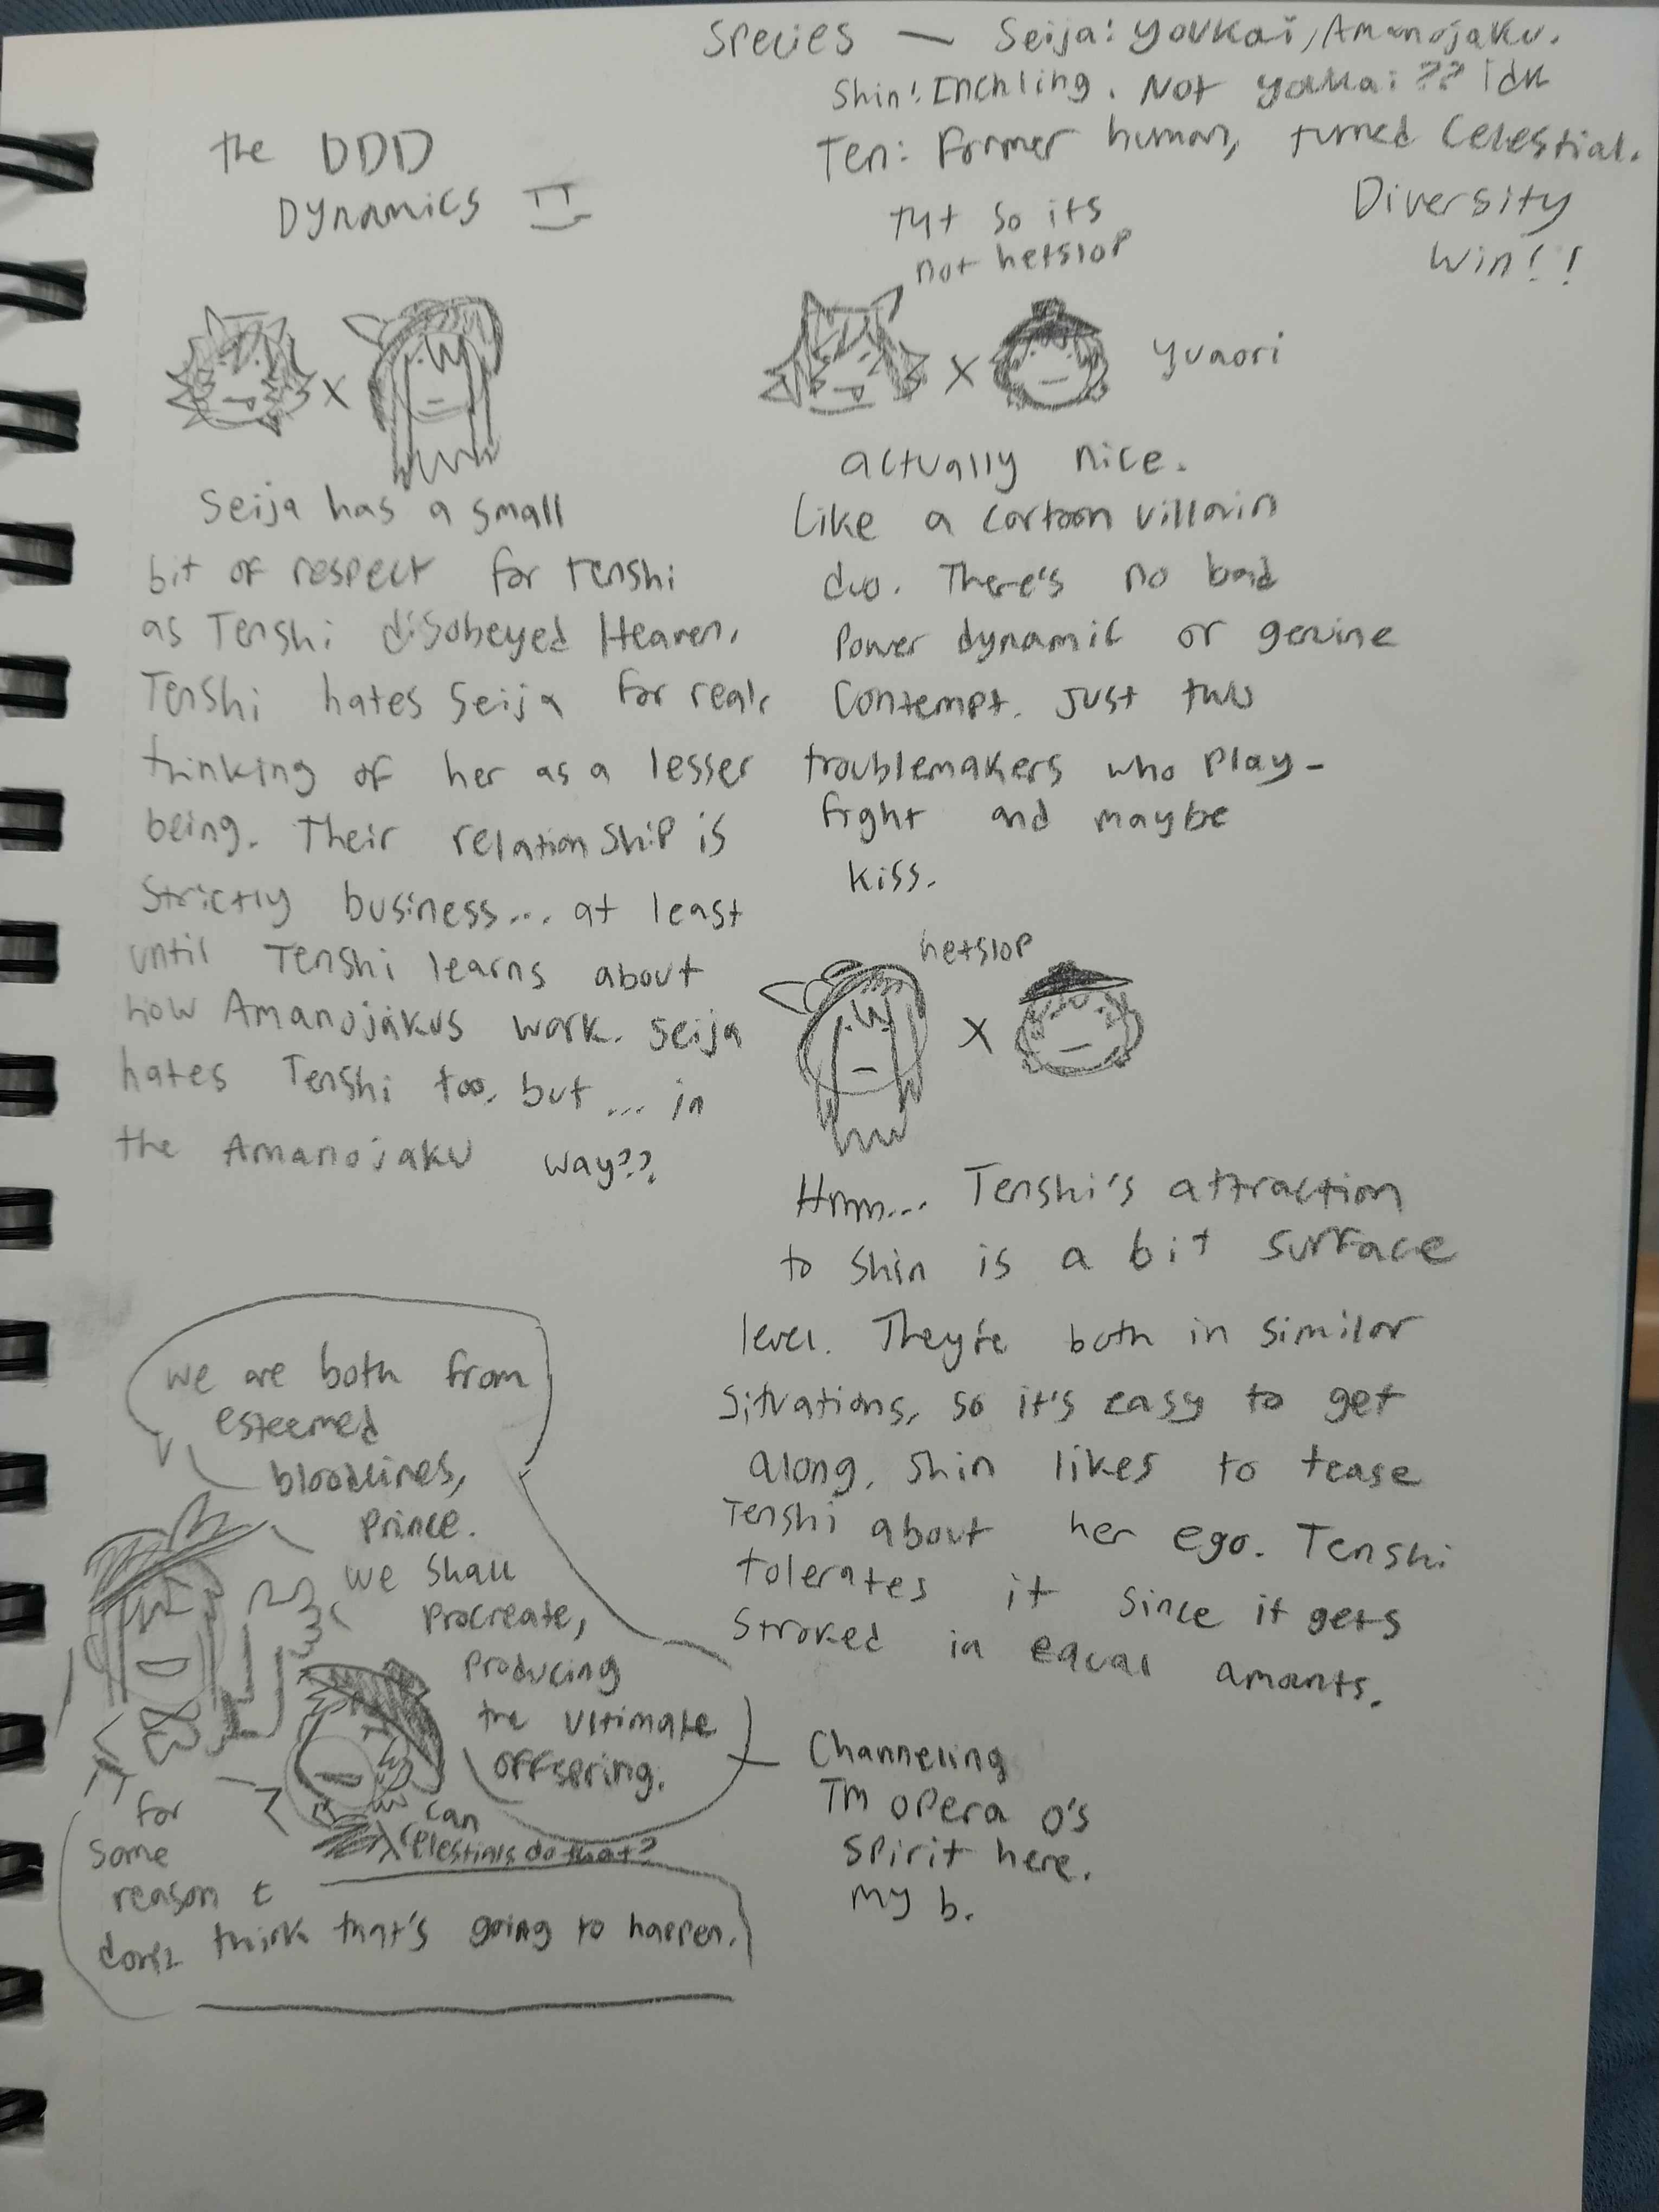 Species — Seija: youkai, Amanojaku.
Shin: Inchling. Not yokai?? idk
Ten: Former human, turned Celestial.
Diversity
Win!!
the DDD
Dynamics
x
Seija has a small
bit of respect for tenshi
as Tenshi disobeyed Heaven.
Tenshi hates Seija for real,
thinking of her as a lesser
being. Their relationship is
Strictly business... at least
until Tenshi learns about
how Amanojakus work. Seija
hates Tenshi too, but... in
the Amanojaku way??
T4T so its
not hetslop
x
yuaori
actually nice.
Like a cartoon villain
duo. There's no bad
Power dynamic or genuine
Contempt. Just two
troublemakers who play-
fight and maybe
kiss.
hetslop
x
Hmm... Tenshi's attraction
to Shin is a bit surface
level. They're both in similar
Situations, so it's easy to get
along. Shin likes to tease
Tenshi about her ego. Tenshi
tolerates it since it gets
Stroked in equal amants.
we are both from
esteemed
bloodlines,
Prince.
We Shall
Procreate,
Producing
the ultimate
offspring.
Channeling
TM opera o's
Spirit here.
my b.
can
celestials do that?
for
some
reason I
don't think that's going to happen.